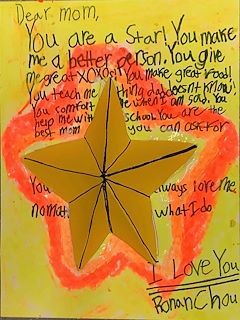 Dear mom,
You are a Star! You make
me a better person. You give
me great xoxo! You make great food!
You teach me thing dad doesnt know!
You comfort me when I am sad. You
help me with School. You are the
best mom you can ask for
You always love me
no mat what I do
I Love You
Ronan Chou